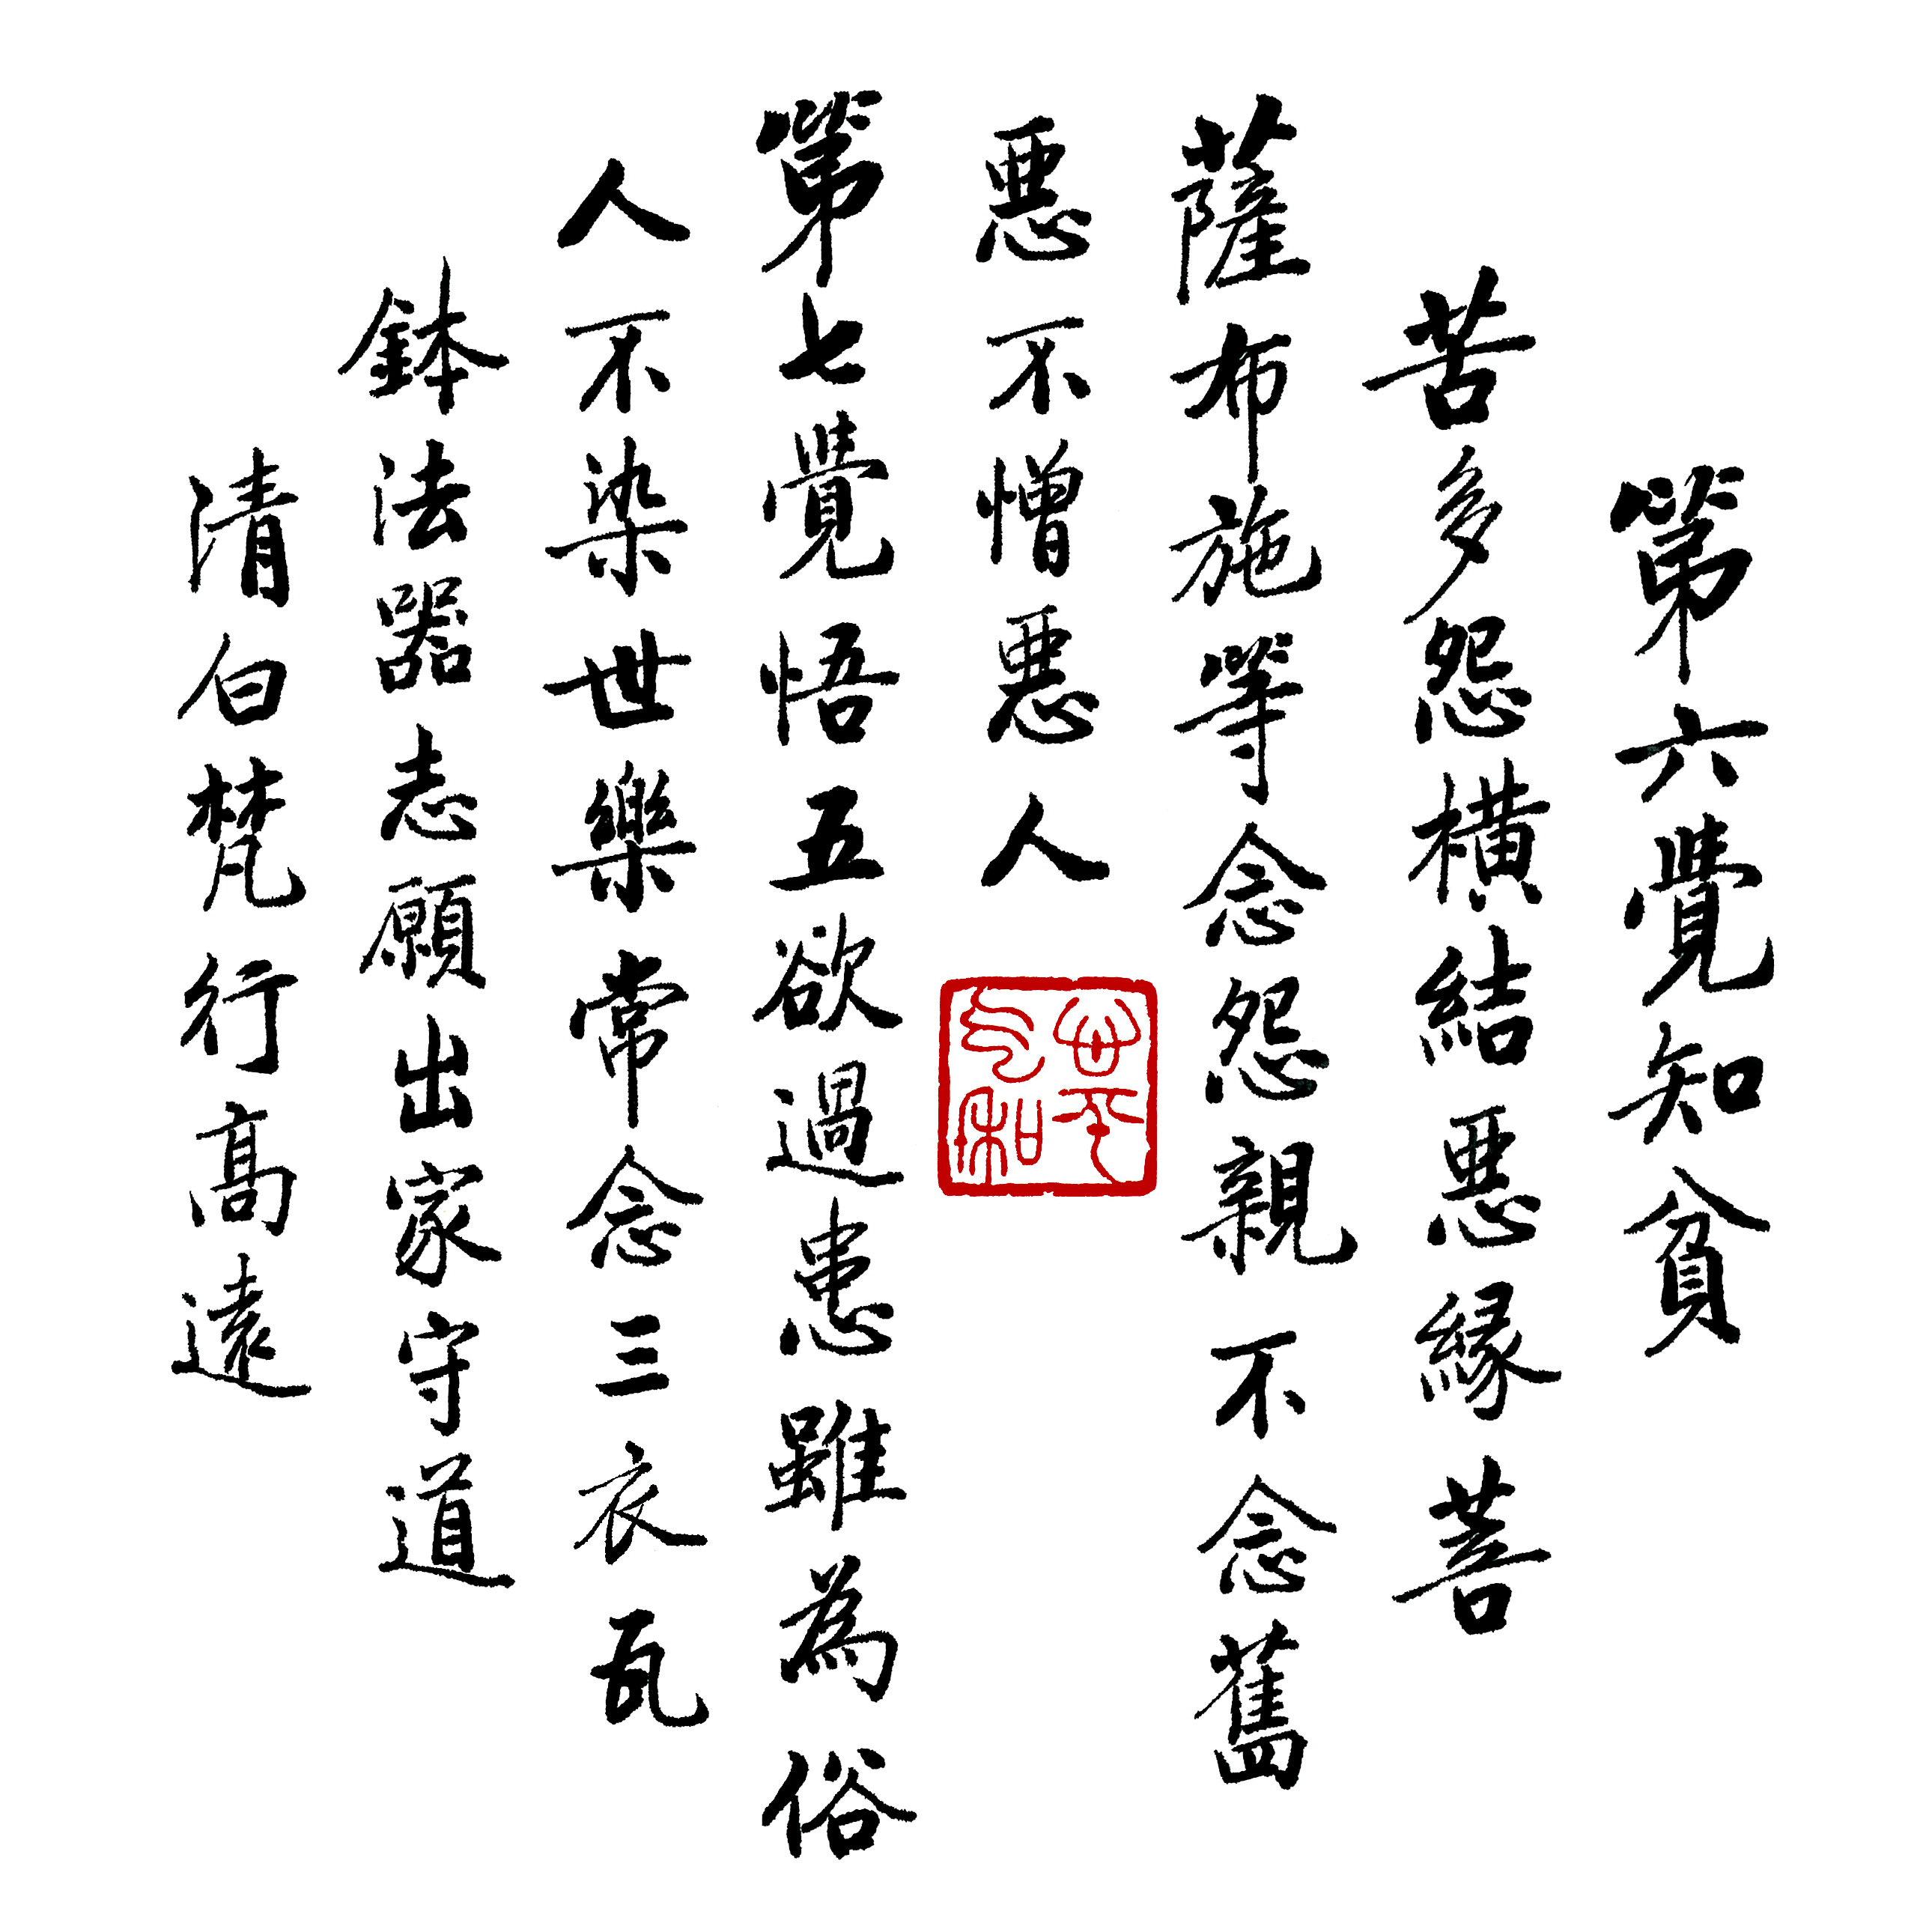 第六覺知貧
苦多怨橫結惡緣菩
薩布施等念怨親不念舊
惡不憎惡人
第七覺悟五欲過患雖為俗
人不染世樂常念三衣瓦
鉢法器志願出家守道
清白梵行高遠